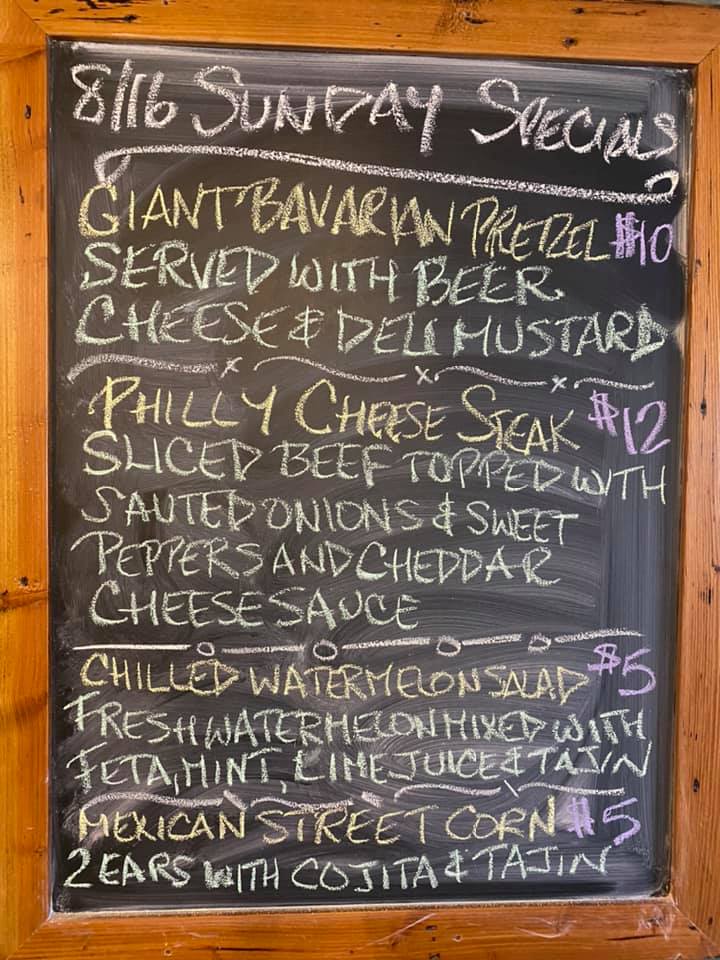 8/16 SUNDAY SPECIALS
GIANT BAVARIAN PRETZEL $10
SERVED WITH BEER
CHEESE & DELI MUSTARD
PHILLY CHEESE STEAK $12
SLICED BEEF TOPPED WITH
SAUTED ONIONS & SWEET
PEPPERS AND CHEDDAR
CHEESE SAUCE
CHILLED WATERMELON SALAD $5
FRESH WATERMELON MIXED WITH
FETA, MINT, LIME JUICE & TAJIN
MEXICAN STREET CORN $5
2 EARS WITH COJITA & TAJIN